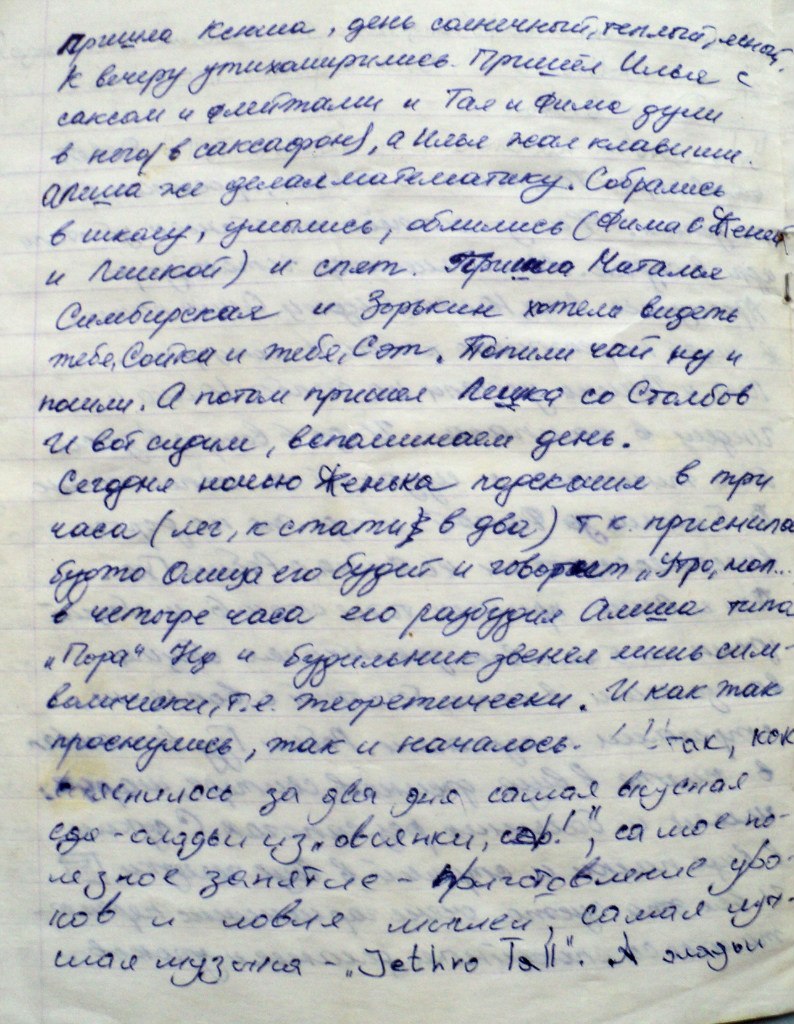 пришла Ксюша, день солнечный, теплый, ясный.
К вечеру утихомирились. Пришёл Илья с
саксом и флейтами и Тая и Фима дули
в него (в саксафон), а Илья жал клавиши.
Алиша же делал математику. Собрались
в школу, умылись, облились (Фима с Женей
и Лешкой) и спят. Пришла Наталья
Симбирская и Зорькин хотели видеть
тебя, Сойка и тебя, Сэт. Попили чай ну и
пошли. А потом пришел Лешка со Столбов
И вот сидим, вспоминаем день.
Сегодня ночью Женька подскочил в три
часа (лег, к стати в два) т.к. приснила
будто Олица его будит и говорит „Утро, мол...
в четыре часа его разбудил Алиша типа
„Пора" Ну и будильник звенел лишь сим-
волически, т.е. теоретически. И как так
проснулись, так и началось. Итак, как
за два дня самая вкусная
еда - оладьи из „овсянки, сэр!", самое по-
лезное занятие - приготовление уро-
ков и ловля мышей, самая луч-
шая музыка - „Jethro Tall". А оладьи